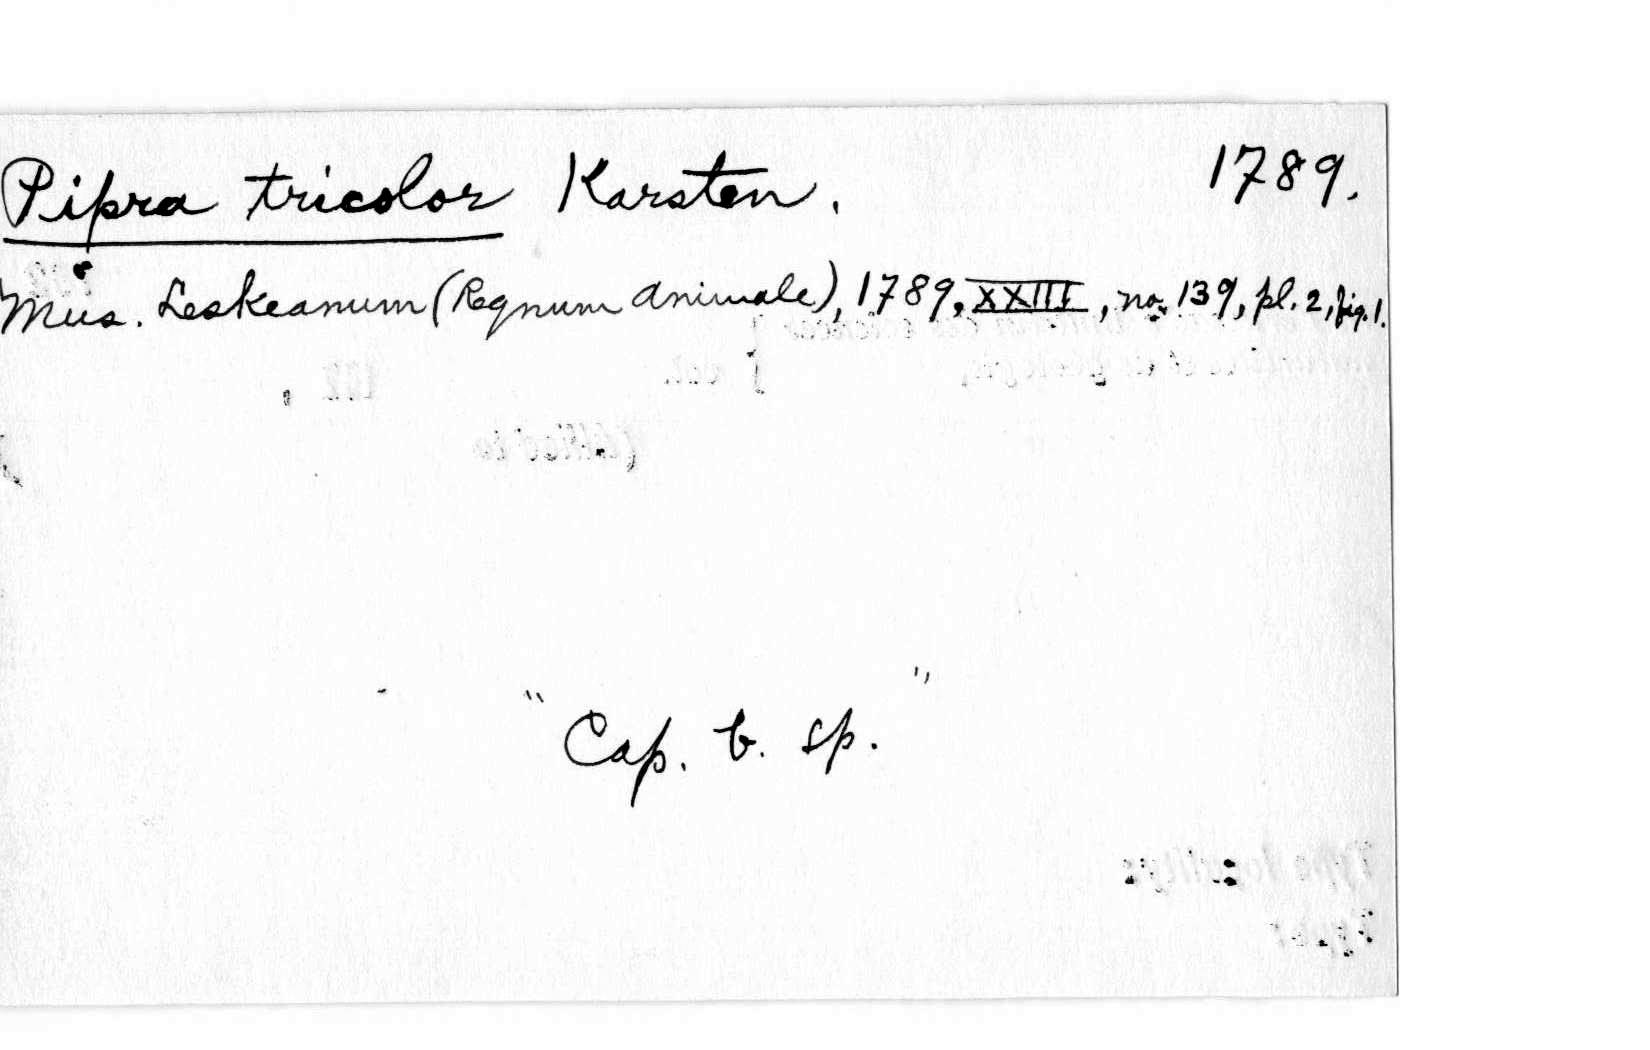 Pipra tricolor Karsten. 1789.
Mus. Leskeanum (Regnum Animale), 1789, XXIII, no. 139, pl. 2, fig. 1.
" Cap. b. sp. "